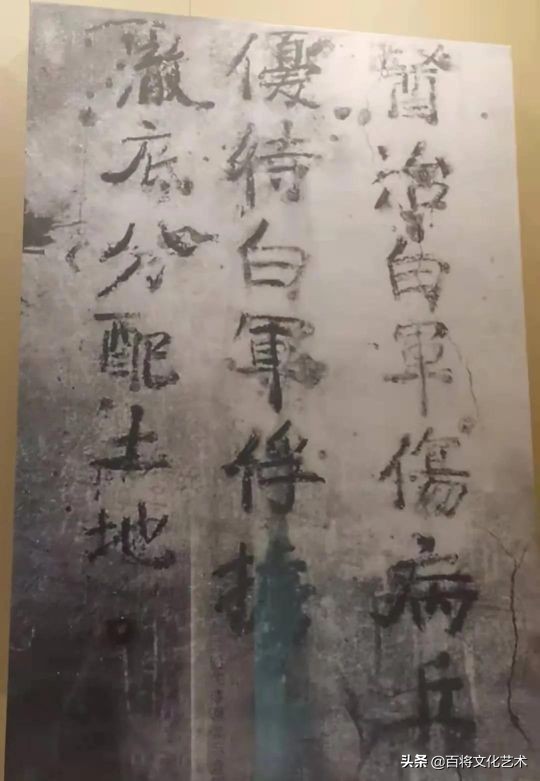 醫治白軍傷病兵
優待白軍俘擄
澈底分配土地。
头条 @百将文化艺术